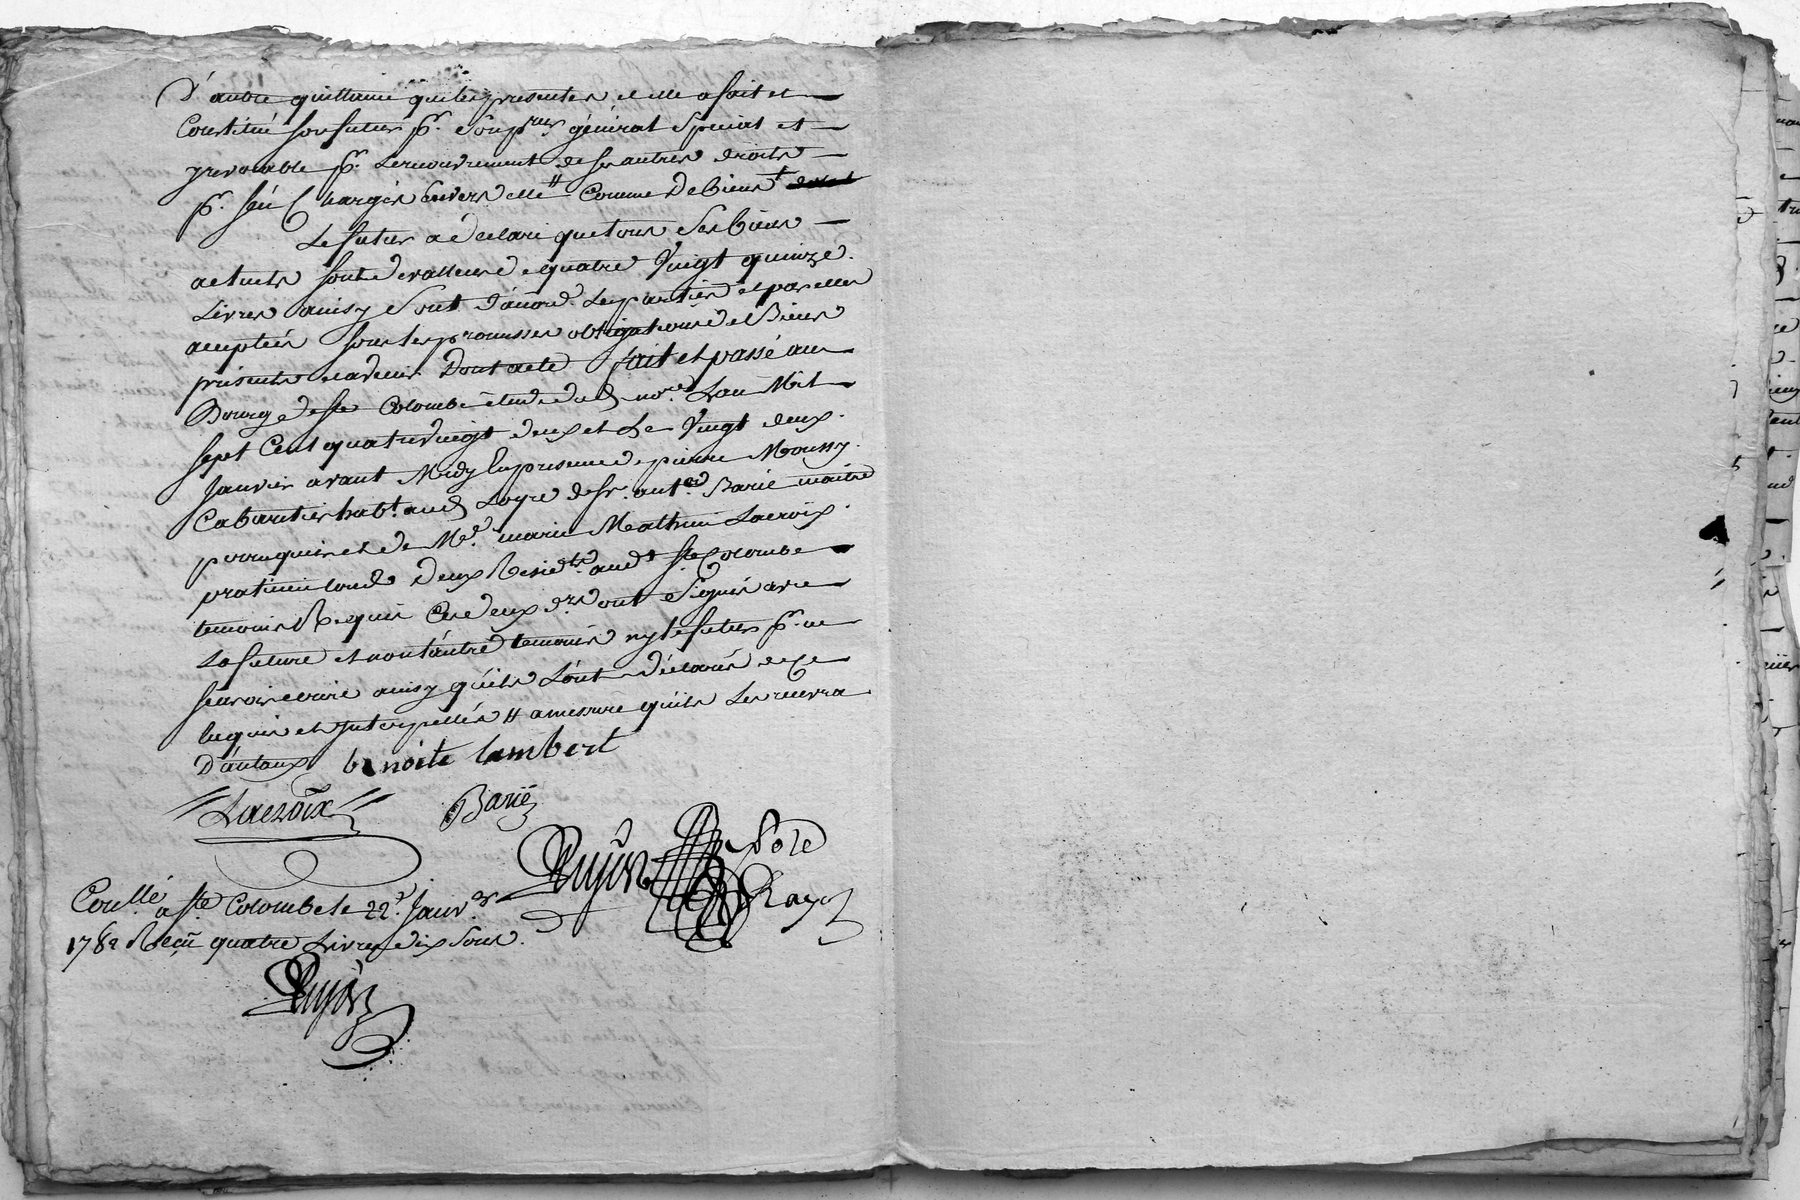 D'autre quittance que les presentes, et elle a fait et
Constitué son futur pr. son prur. général special et
yrevocable pr. Le recouvrement de ses autres droits
pr. s'en Charger Envers elle # Comme De bien t
Le futur a declaré que tous ses biens
actuels sont de valleur de quatre Vingt quinze
Livres ainsy sont d'accord Les parties et par elles
acceptées sous les promesses obligations et Biens
presents et a venir Dont acte fait et passé au
Bourg de ste Colombe étude dud. nore. L'an Mil
sept Cent quatre vingt deux et Le Vingt deux
Janvier avant Midy En presence de pierre Moussy
Cabaretier habt. aud. Loyre de sr. ante. Barié maitre
perruquier et de Me. marie Mathieu Lacroix
praticien tous Deux Residts. aud. ste Colombe
temoins Requis Ces deux drs. ont signés avec
La future et non l'autre temoin ny le futur pr. ne
sçavoir ecrire ainsy qu'ils L'ont déclarés de ce
Enquis et Interpellés # a mesure qu'il Les recevra
D'autaux benoite lambert
Lacroix Barié
Pole
Rayo
Coullé a ste Colombe le 22e. Janver.
1782 Reçu quatre Livres dix Sous.